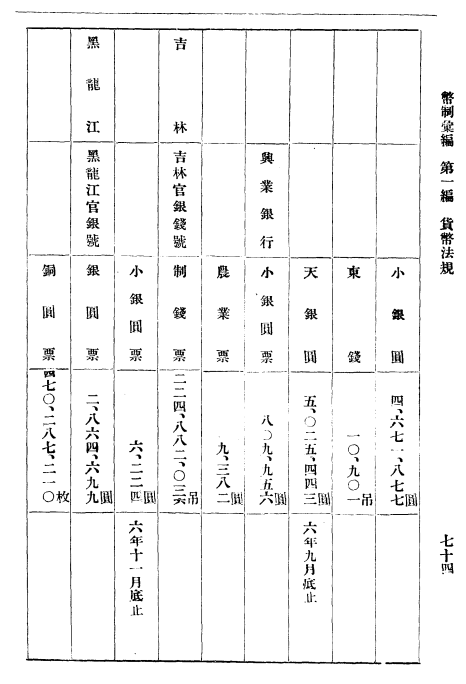 幣制彙編　第一編　貨幣法規
七十四
小銀圓　四、六七一、八七七圓
東錢　一〇、九〇一吊
天銀圓　五、〇二五、四四三圓　六年九月底止
興業銀行　小銀圓票　八〇九、九五六圓
農業票　九、三八二圓
吉林　吉林官銀錢號　制錢票　二二四、八八二、〇三六吊
小銀圓票　六、二二四圓　六年十一月底止
黑龍江　黑龍江官銀號　銀圓票　二、八六四、六九九圓
銅圓票　四七〇、二八七、二一〇枚